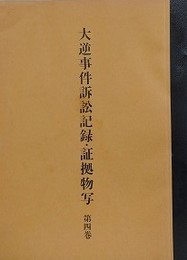 大逆事件訴訟記録・証拠物写 第四巻